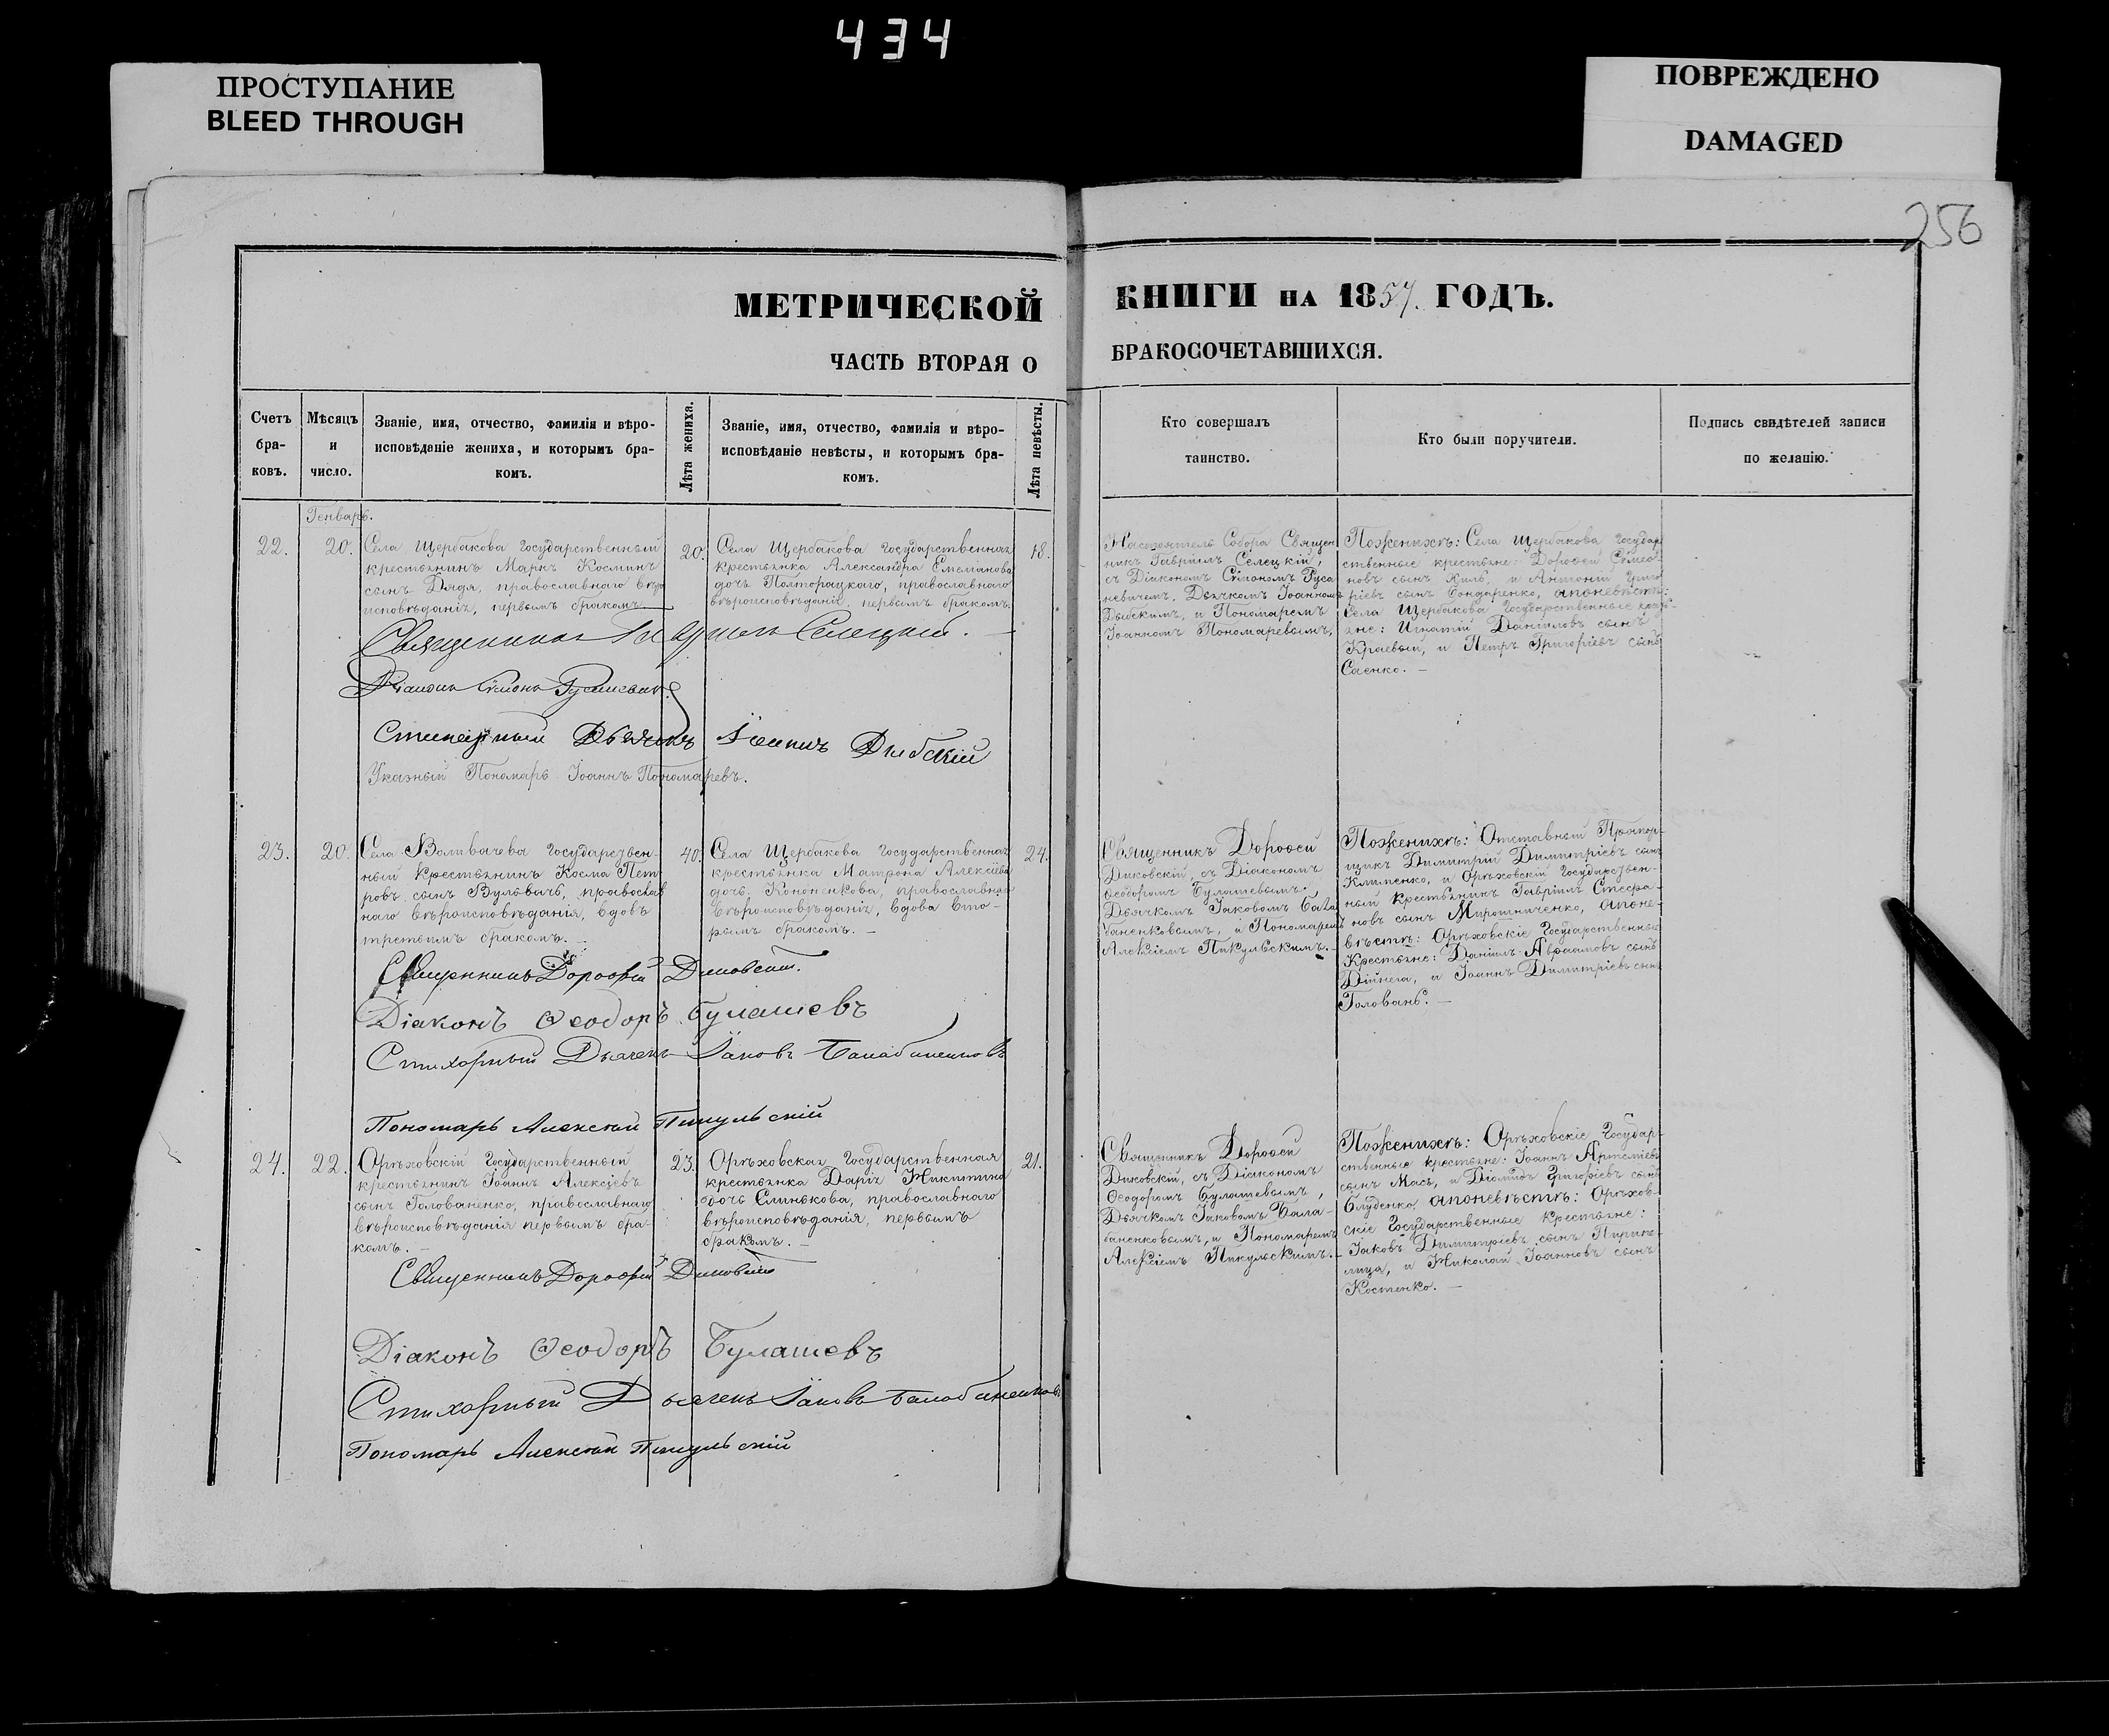 434
ПРОСТУПАНИЕ
BLEED THROUGH
ПОВРЕЖДЕНО
DAMAGED
256
МЕТРИЧЕСКОЙ
КНИГИ НА 1857. ГОДЪ.
ЧАСТЬ ВТОРАЯ О
БРАКОСОЧЕТАВШИХСЯ.
Счетъ
бра-
ковъ.
Мѣсяцъ
и
число.
Званіе, имя, отчество, фамилія и вѣро-
исповѣданіе жениха, и которымъ бра-
комъ.
Лѣта жениха.
Званіе, имя, отчество, фамилія и вѣро-
исповѣданіе невѣсты, и которымъ бра-
комъ.
Лѣта невѣсты.
Кто совершалъ
таинство.
Кто были поручители.
Подпись свидѣтелей записи
по желанію.
Генварь.
22.
20.
Села Щербакова Государственный
крестьянинъ Маркъ Косминъ
сынъ Дядя, православнаго вѣро
исповѣданія, первымъ бракомъ.
20.
Села Щербакова Государственная
крестьянка Александра Емельянова
дочь Полторацкаго, православнаго
вѣроисповѣданія, первымъ бракомъ.
18.
Настоятель Собора Священ
никъ Гавріилъ Селецкій,
съ Діакономъ Сѵмономъ Руса
невичемъ, Дьячкомъ Іоанномъ
Дыбскимъ, и Пономаремъ
Іоанномъ Пономаревымъ,
Поженихѣ: Села Щербакова Государ
ственные крестьяне: Дорофей Сѵмео-
новъ сынъ Киль, и Антоній Григо
ріевъ сынъ Бондаренко, апоневѣстѣ:
Села Щербакова Государственные крестья-
не: Игнатій Даніиловъ сынъ
Краевый, и Петръ Григоріевъ сынъ
Саенко. —
Священникъ Гавріилъ Селецкій. —
Діаконъ Сѵмонъ Русаневичъ
Стихарный Дьячокъ Іоаннъ Дыбскій
Указный Пономарь Іоаннъ Пономаревъ.
23.
20.
Села Воливачева Государствен-
ный Крестьянинъ Косма Пет
ровъ сынъ Вульвачъ, православ
наго вѣроисповѣданія, вдовъ
третьимъ бракомъ. —
40.
Села Щербакова Государственная
крестьянка Матрона Алексіева
дочь Кононенкова, православнаго
вѣроисповѣданія, вдова вто-
рымъ бракомъ. —
24.
Священникъ Дорофей
Диковскій, съ Діакономъ
Ѳеодоромъ Булашевымъ,
Дьячкомъ Іаковомъ Бала
баненковымъ, и Пономаремъ
Алексіемъ Пикульскимъ. —
Поженихѣ: Отставный Прапор-
щикъ Димитрій Димитріевъ сынъ
Клименко, и Орѣховскій Государствен-
ный крестьянинъ Гавріилъ Стефа-
новъ сынъ Мирошниченко, апоне-
вѣстѣ: Орѣховскіе Государственные
Крестьяне: Даніилъ Авраамовъ сынъ
Дійнега, и Іоаннъ Димитріевъ сынъ
Головань. —
Священникъ Дорофей Диковскій.
Діаконъ Ѳеодоръ Булашевъ
Стихарный Дьячекъ Іаковъ Балабаненковъ
Пономарь Алексій Пикульскій
24.
22.
Орѣховскій Государственный
крестьянинъ Іоаннъ Алексіевъ
сынъ Голованенко, православнаго
вѣроисповѣданія первымъ бра-
комъ. —
23.
Орѣховская Государственная
крестьянка Дарія Никитина
дочь Слинькова, православнаго
вѣроисповѣданія, первымъ
бракомъ. —
21.
Священникъ Дорофей
Диковскій, съ Діакономъ
Ѳеодоромъ Булашевымъ,
Дьячкомъ Іаковомъ Бала-
баненковымъ, и Пономаремъ
Алексіемъ Пикульскимъ. —
Поженихѣ: Орѣховскіе Государ-
ственные крестьяне: Іоаннъ Артеміевъ
сынъ Мась, и Діомидъ Григоріевъ сынъ
Блуденко, апоневѣстѣ: Орѣхов-
скіе Государственные Крестьяне:
Іаковъ Димитріевъ сынъ
и Николай Іоанновъ сынъ
Костенко. —
Священникъ Дорофей Диковскій
Діаконъ Ѳеодоръ Булашевъ
Стихарный Дьячекъ Іаковъ Балабаненковъ
Пономарь Алексій Пикульскій